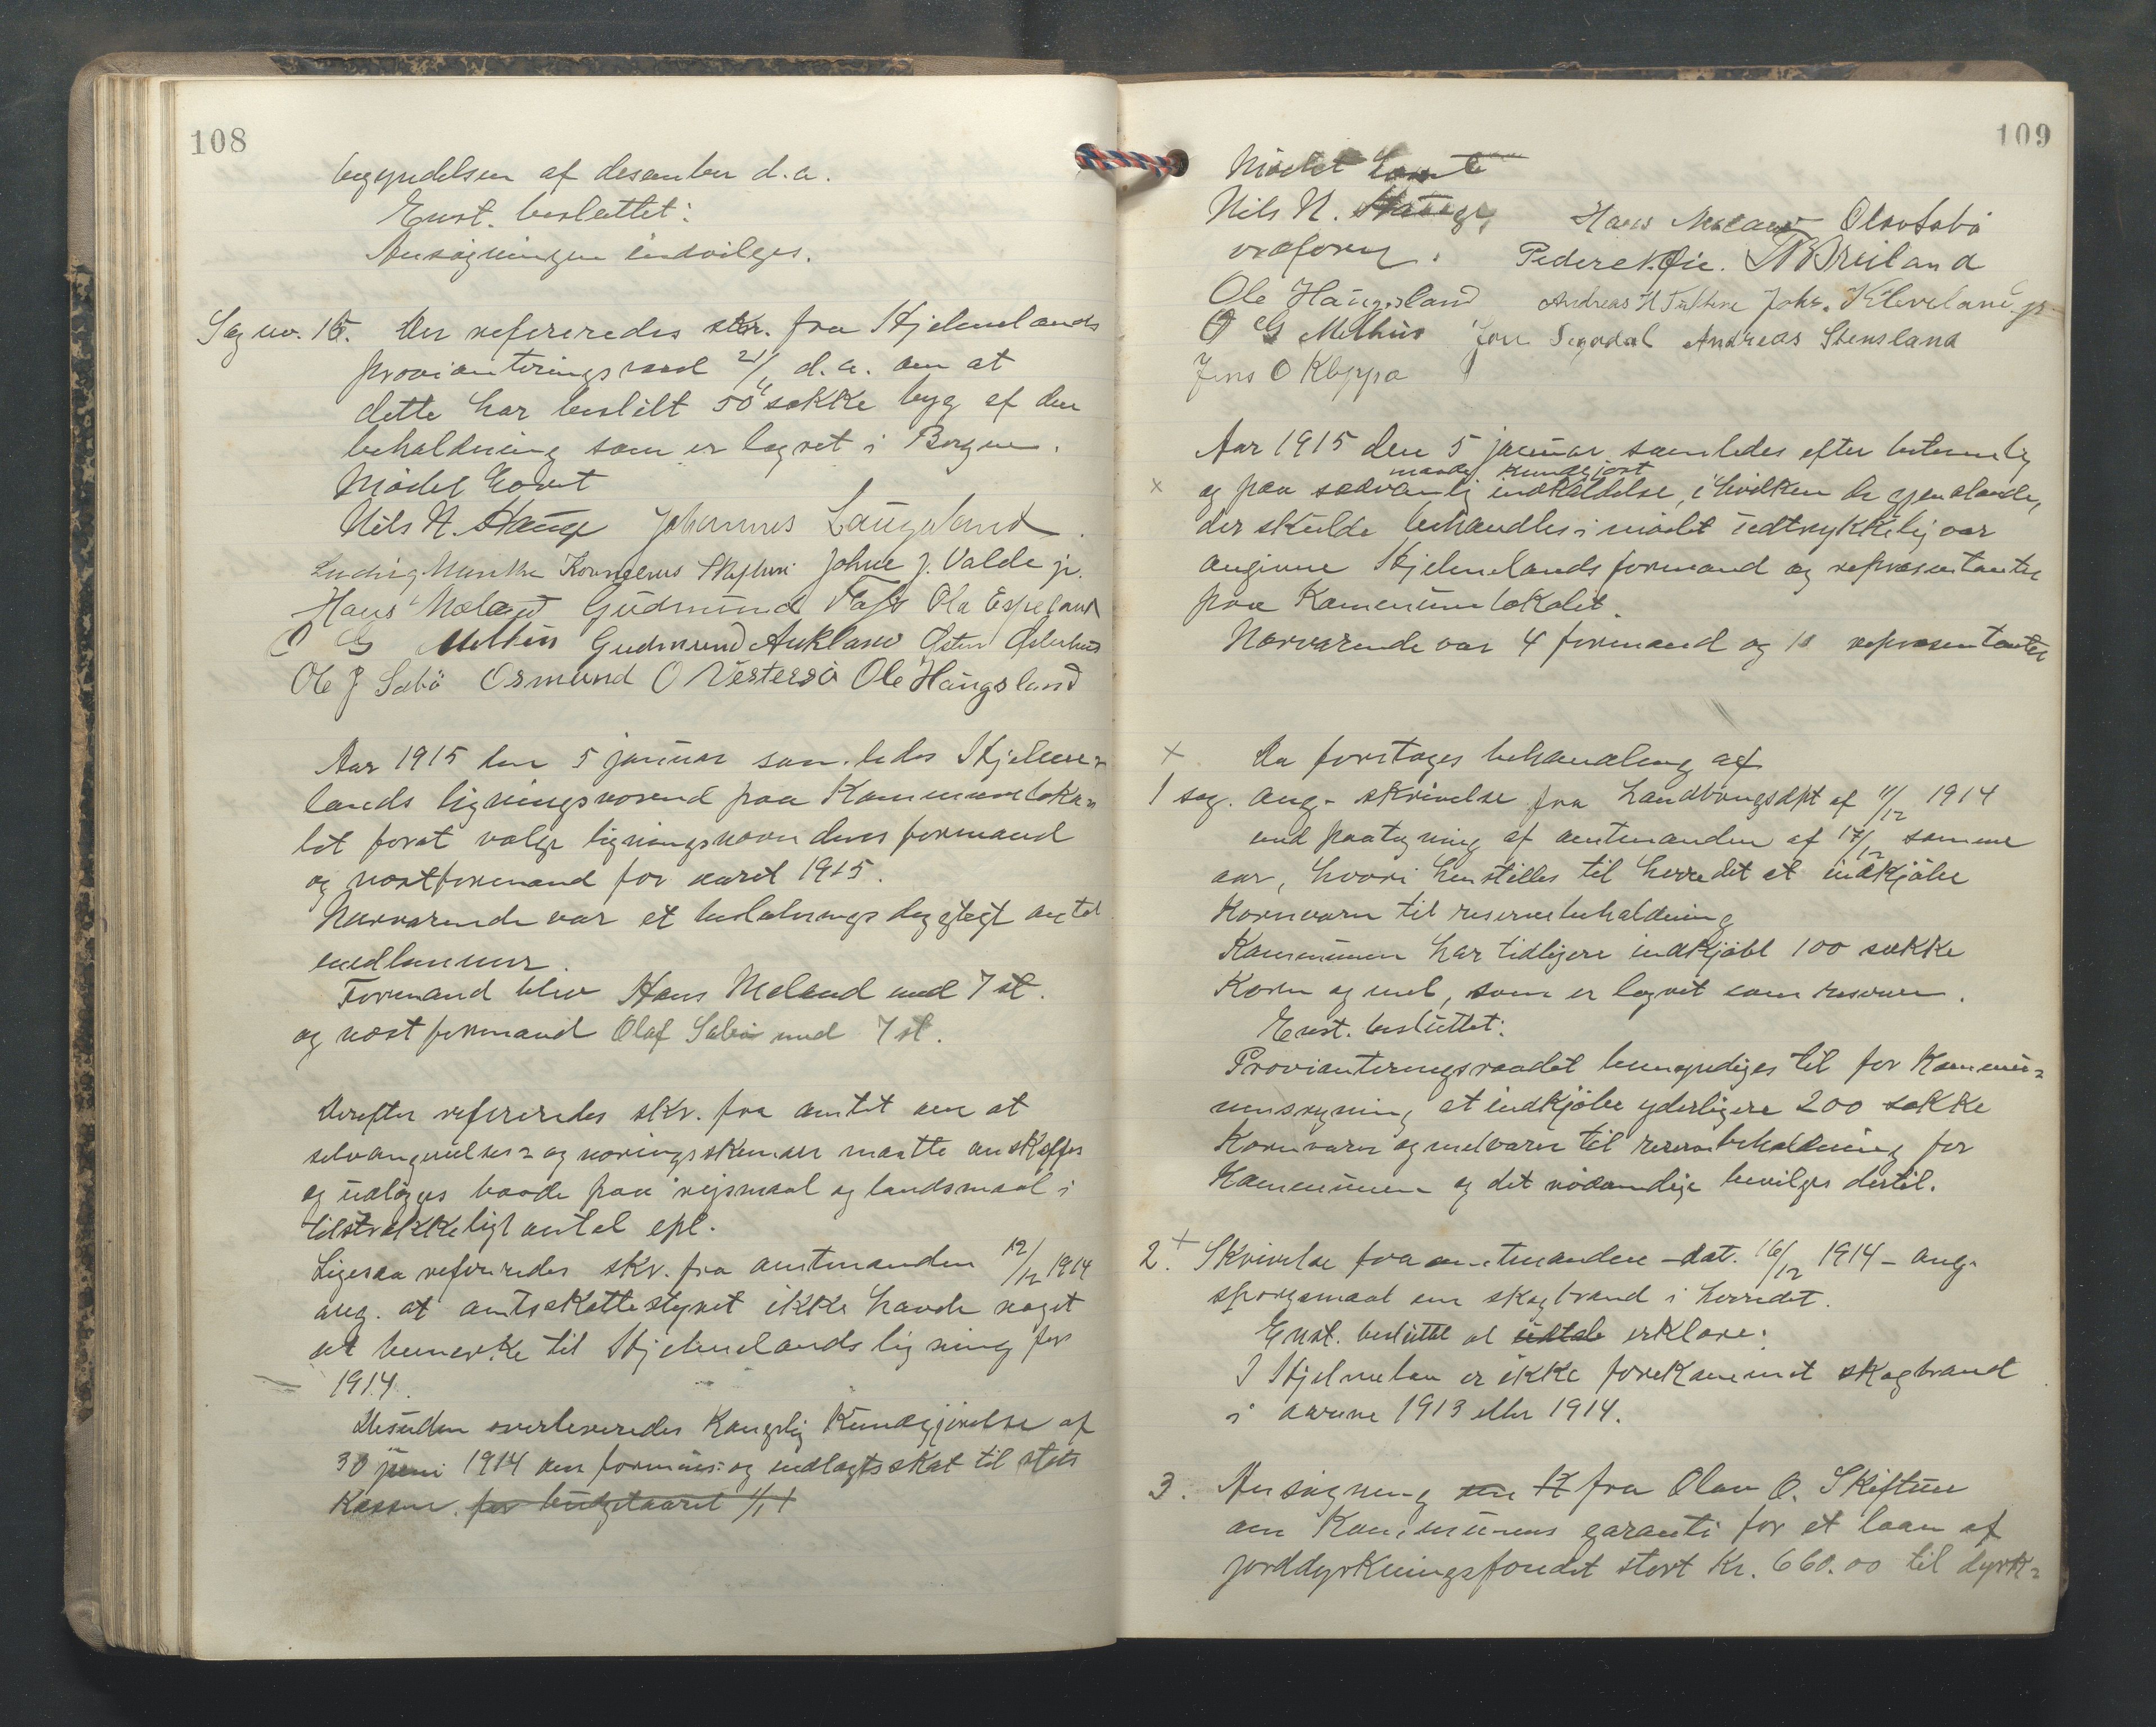 108
begyndelsen af desember d.a.
Enst. besluttet:
Ansøgningen indvilges.
Sag no. 16. Der refereredes skr. fra Hjelmelands
provianteringsraad 21/ d.a. om at
dette har bestilt 50 sække byg af den
beholdning som er lagret i Bergen.
Mødet hævet
Nils N. Hauge Johannes Laugaland
Ludvig Munke Kornelius Skiftun Johne J. Valde jr.
Hans Mæland Gudmund Ola Espeland
O G Melhus Gudmund Aukland Østen Østerhus
Ole J Sæbø Osmund O Vestersø Ole Haugsland
Aar 1915 den 5 januar samledes Hjelme-
lands ligningsnævnd paa Kommuneloka-
let forat vælge ligningsnævndens formand
og næstformand for aaret 1915.
Nærværende var et beslutningsdygtigt antal
medlemmer.
Formand blev Hans Mæland med 7 st.
og næstformand Olaf Sæbø med 7 st.
Derefter refereredes skr. fra amtet om at
selvangivelses- og næringsskemaer maatte anskaffes
og udlægges baade paa rigsmaal og landsmaal i
tilstrækkeligt antal epl.
Ligesaa refereredes skr. fra amtmanden 12/12 1914
ang. at amtsskattestyret ikke havde noget
at bemerke til Hjelmelands ligning for
1914.
Desuden overleveredes Kongelig Kundgjørelse af
30 juni 1914 om formues- og indtægtsskat til stats
Kassen. for budgetaaret 1/1
109
Mødet hævet
Nils N. Hauge Hans Mæland Olav Sæbø
ordfører. Peder N. Øie. T B Breiland
Ole Haugsland Andreas H Johs. Kleveland jr.
O G Melhus Jon Segadal Andreas Stensland
Jens O Kleppa
Aar 1915 den 5 januar samledes efter betimelig
maade kundgjort
x og paa sædvanlig indkaldelse, i hvilken de gjenstande,
der skulde behandles i mødet udtrykkelig var
angivne Hjelmelands formænd og repræsentanter
paa Kommunelokalet.
Nærværende var 4 formænd og 10 repræsentanter
x Da foretoges behandling af
1 sag. ang. skrivelse fra Landbrugsdpt af 11/12 1914
med paategning af amtmanden af 17/12 samme
aar, hvori henstilles til herredet at indkjøbe
Kornvarer til reservebeholdning
Kommunen har tidligere indkjøbt 100 sække
Korn og mel, som er lagret som reserve.
Enst. besluttet:
Provianteringsraadet bemyndiges til for Kommu-
nens regning at indkjøbe yderligere 200 sække
Kornvarer og melvarer til reservebeholdning for
Kommunen og det nødvendige bevilges dertil.
2. x Skrivelse fra amtmanden - dat. 16/12 1914 - ang.
spørgsmaal om skogbrand i herredet.
Enst. besluttet at udtale erklære:
I Hjelmelan er ikke forekommet skogbrand
i aarene 1913 eller 1914.
3. Ansøgning om fra Olav O. Skiftun
om Kommunens garanti for et laan af
jorddyrkningsfondet stort Kr. 660.00 til dyrk-